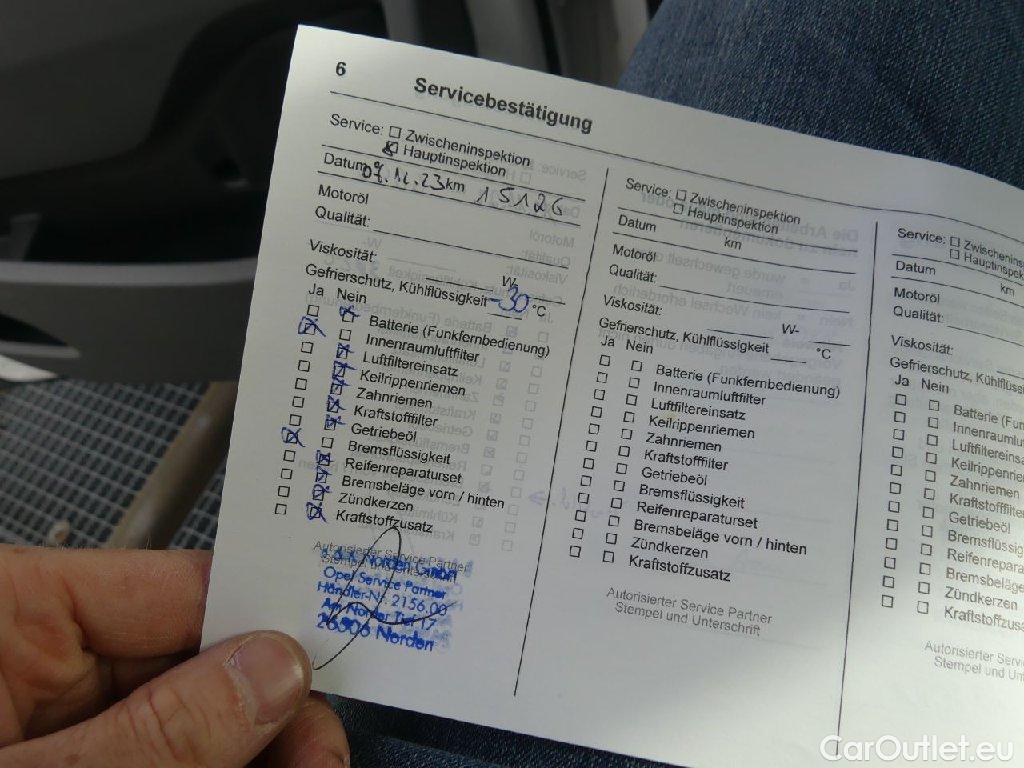 6 Servicebestätigung
Service: Zwischeninspektion
Hauptinspektion
Datum km 15126
Motoröl
Qualität:
Viskosität: W-
Gefrierschutz, Kühlflüssigkeit -30 °C
Ja Nein
Batterie (Funkfernbedienung)
Innenraumluftfilter
Luftfiltereinsatz
Keilrippenriemen
Zahnriemen
Kraftstofffilter
Getriebeöl
Bremsflüssigkeit
Reifenreparaturset
Bremsbeläge vorn / hinten
Zündkerzen
Kraftstoffzusatz
Autorisierter Service Partner
Stempel
Norden GmbH
Opel Service Partner
Händler-Nr. 2156,00
Am Norder Tief 17
26506 Norden
Service: Zwischeninspektion
Hauptinspektion
Datum km
Motoröl
Qualität:
Viskosität: W-
Gefrierschutz, Kühlflüssigkeit °C
Ja Nein
Batterie (Funkfernbedienung)
Innenraumluftfilter
Luftfiltereinsatz
Keilrippenriemen
Zahnriemen
Kraftstofffilter
Getriebeöl
Bremsflüssigkeit
Reifenreparaturset
Bremsbeläge vorn / hinten
Zündkerzen
Kraftstoffzusatz
Autorisierter Service Partner
Stempel und Unterschrift
Service: Zwischenins
Hauptinspek
Datum km
Motoröl
Qualität:
Viskosität:
Gefrierschutz, Kühlflüssi
Ja Nein
Batterie (Fun
Innenraumlu
Luftfiltereins
Keilrippenri
Zahnriemen
Kraftstofffilt
Getriebeöl
Bremsflüssig
Reifenrepara
Bremsbeläge
Zündkerzen
Kraftstoffzusa
Autorisierter Servi
Stempel und Unt
CarOutlet.eu